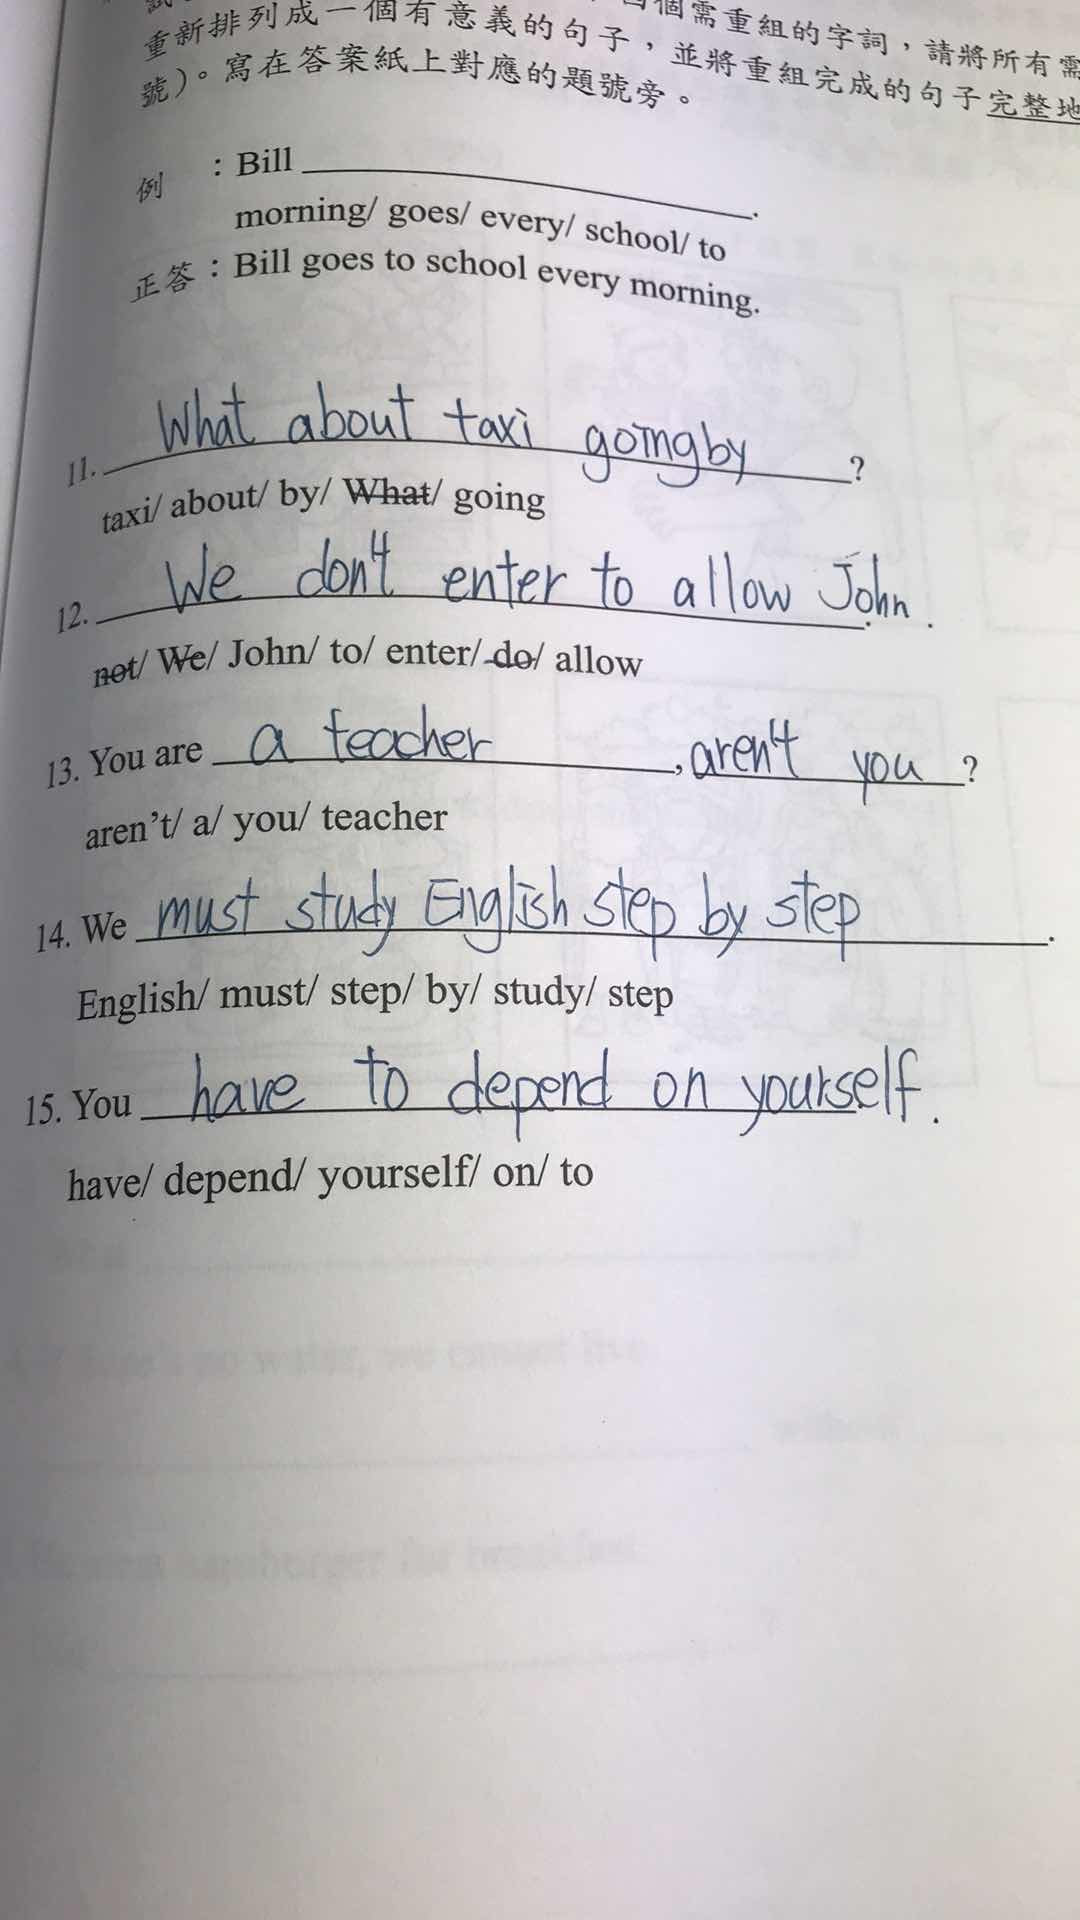 個需重組的字詞，請將所有需
重新排列成一個有意義的句子，並將重組完成的句子完整地
號）。寫在答案紙上對應的題號旁。
例 : Bill ______.
morning/ goes/ every/ school/ to
正答 : Bill goes to school every morning.
11. What about taxi going by ?
taxi/ about/ by/ What/ going
12. We don't enter to allow John.
not/ We/ John/ to/ enter/ do/ allow
13. You are a teacher , aren't you ?
aren't/ a/ you/ teacher
14. We must study English step by step .
English/ must/ step/ by/ study/ step
15. You have to depend on yourself.
have/ depend/ yourself/ on/ to